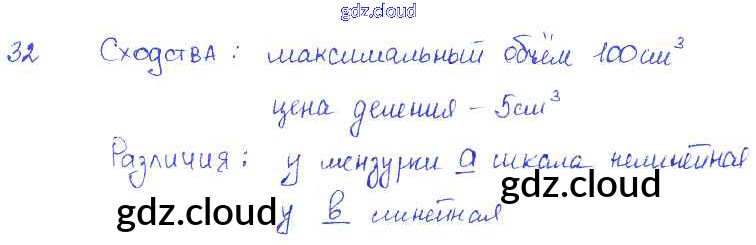 gdz.cloud
32 Сходства: максимальный объём 100см³
цена деления - 5см³
Различия: у мензурки а шкала нелинейная
gdz.cloud
gdz.cloud у в линейная